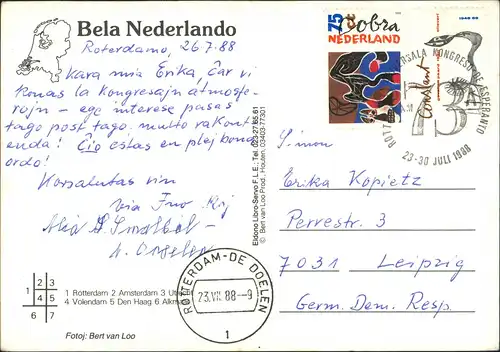 Bela Nederlando
Roterdamo, 26.7.88
Kara mia Erika, ĉar vi
konas la kongresajn atmosfe-
rojn – ege interese pasas
tago post tago. multo rakont
enda! Ĉio estas en plej bona
ordo!
Korsalutas vin
via
1 2 3 4 5 6 7
1 Rotterdam 2 Amsterdam 3 Utrecht
4 Volendam 5 Den Haag 6 Alkmaar
Fotoj: Bert van Loo
Eldonis Libro-Servo F.L.E., Tel. 023-27.65.61
© Bert van Loo Prod., Houten, 03403-77301
75 c Cobra
NEDERLAND
Constant
KONGRESO DE ESPERANTO
23-30 JULI 1988
ROTTERDAM-DE DOELEN
23.VII.88-9
1
Erika Kopietz
Perrestr. 3
7031 Leipzig
Germ. Dem. Resp.